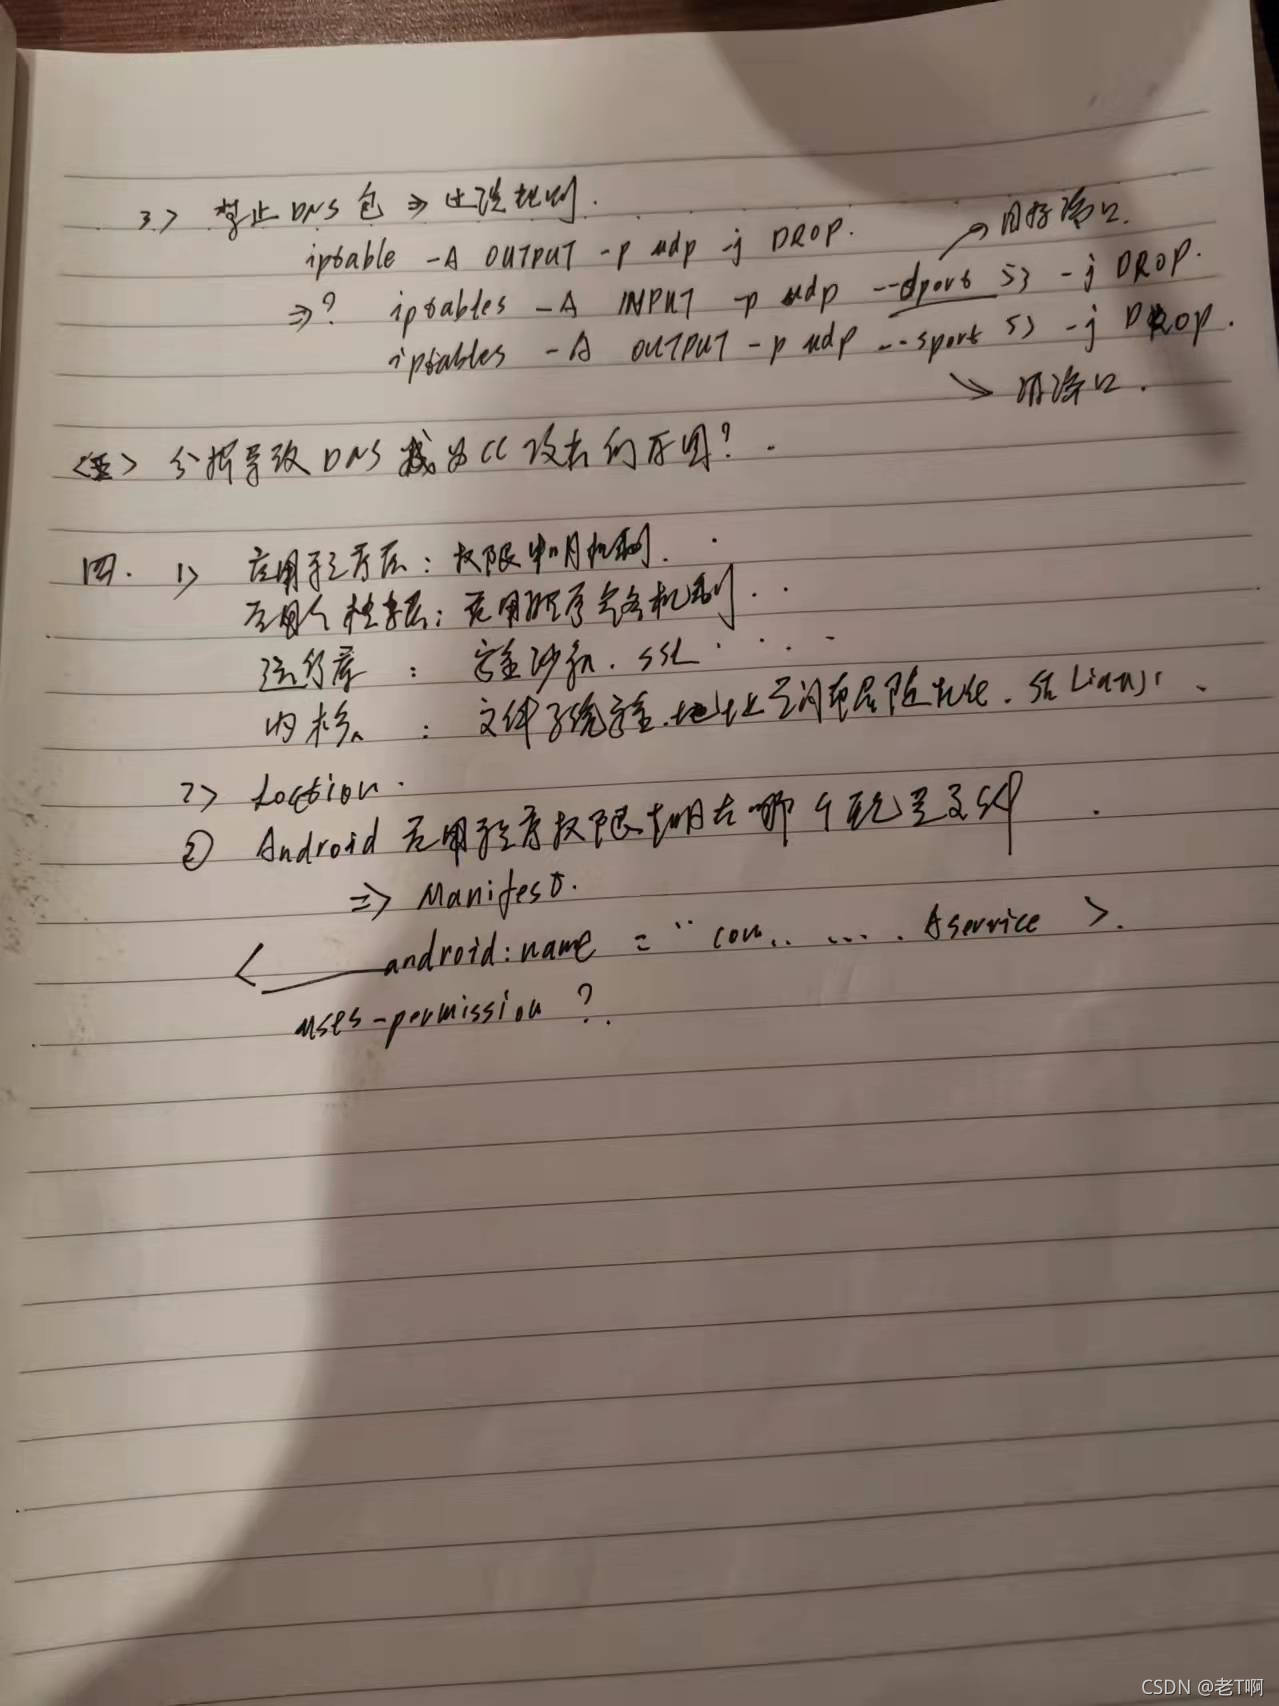 3> 禁止DNS包 => 过滤规则.
iptable -A OUTPUT -p udp -j DROP.
目标端口.
=>? iptables -A INPUT -p udp --dport 53 -j DROP.
iptables -A OUTPUT -p udp --sport 53 -j DROP.
源端口.
<五> 分析导致DNS成为CC攻击的原因?.
四. 1> 应用程序层: 权限申明机制.
应用个框架层: 应用程序签名机制.
运行库 : 安全沙箱. SSL
内核 : 文件系统安全.地址空间布局随机化.
2> Location.
② Android应用程序权限声明在哪个配置文件.
=> Manifest.
< android:name = "com.. .... Aservice >.
uses-permission ?.
CSDN @老T啊